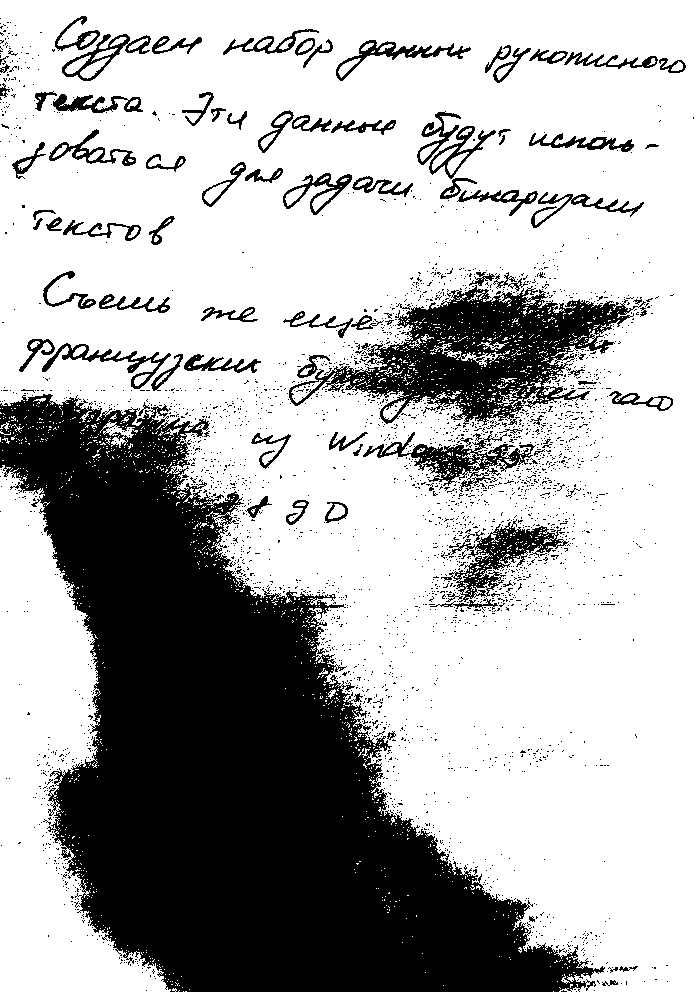 Создаем набор данных рукописного
текста. Эти данные будут исполь-
зоваться для задачи бинаризации
текстов
Съешь же ещё
французских чаю
из Windows 95
9 D